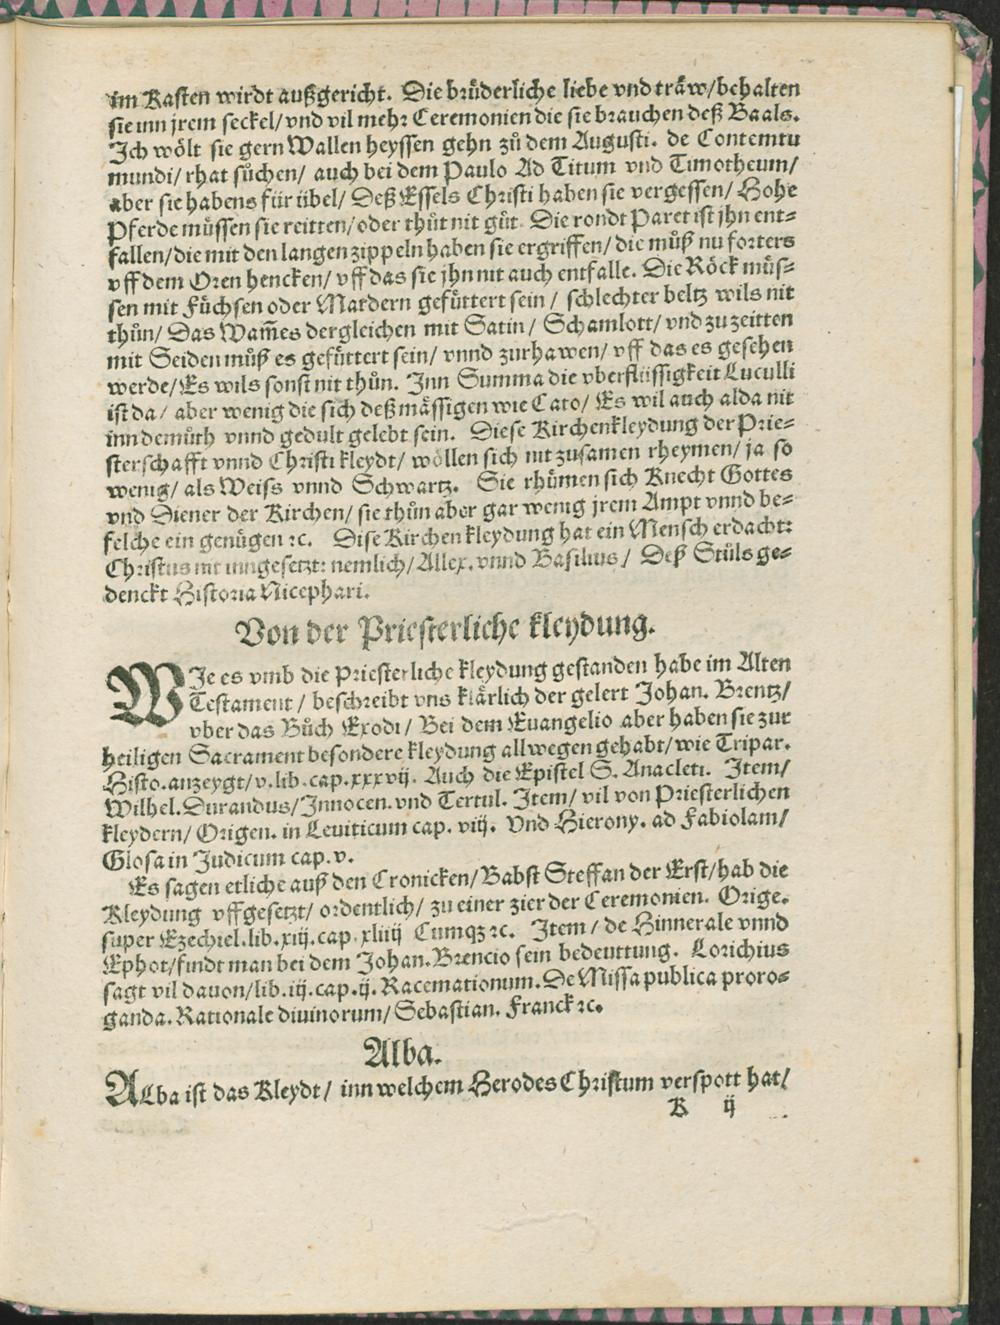 im Kasten wirdt außgericht. Die brůderliche liebe vnd träw/behalten
sie inn jrem seckel/vnd vil mehr Ceremonien die sie brauchen deß Baals.
Ich wölt sie gern Wallen heyssen gehn zů dem Augusti. de Contemtu
mundi/ rhat sůchen/ auch bei dem Paulo Ad Titum vnd Timotheum/
aber sie habens für übel/ Deß Essels Christi haben sie vergessen/ Hohe
Pferde müssen sie reitten/oder thůt nit gůt. Die rondt Paret ist jhn ent⸗
fallen/die mit den langen zippeln haben sie ergriffen/ die můß nu forters
vff dem Oren hencken/ vff das sie jhn nit auch entfalle. Die Röck müs⸗
sen mit Füchsen oder Mardern gefüttert sein/ schlechter beltz wils nit
thůn/ Das Wam̃es dergleichen mit Satin/ Schamlott/ vnd zu zeitten
mit Seiden můß es gefüttert sein/ vnnd zurhawen/ vff das es gesehen
werde/Es wils sonst nit thůn. Inn Summa die vberflüssigkeit Luculli
ist da/ aber wenig die sich deß mässigen wie Cato/ Es wil auch alda nit
inn demůth vnnd gedult gelebt sein. Diese Kirchenkleydung der Prie⸗
sterschafft vnnd Christi kleydt/ wöllen sich nit zusamen rheymen/ ja so
wenig/ als Weiss vnnd Schwartz. Sie rhůmen sich Knecht Gottes
vnd Diener der Kirchen/ sie thůn aber gar wenig jrem Ampt vnnd be⸗
felche ein genügen ꝛc. Dise Kirchen kleydung hat ein Mensch erdacht:
Christus nit inngesetzt: nemlich/ Allex. vnnd Basilius/ Deß Stůls ge⸗
denckt Historia Nicephari.
Von der Priesterliche kleydung.
WIe es vmb die Priesterliche kleydung gestanden habe im Alten
Testament/ beschreibt vns klärlich der gelert Johan. Brentz/
vber das Bůch Exodi/ Bei dem Euangelio aber haben sie zur
heiligen Sacrament besondere kleydung allwegen gehabt/wie Tripar.
Histo.anzeygt/v.lib.cap.xxxvij. Auch die Epistel S. Anacleti. Item/
Wilhel.Durandus/Innocen.vnd Tertul. Item/ vil von Priesterlichen
kleydern/ Origen. in Leuiticum cap. viij. Vnd Hierony. ad Fabiolam/
Glosa in Judicum cap.v.
Es sagen etliche auß den Cronicken/Babst Steffan der Erst/hab die
Kleydung vffgesetzt/ ordentlich/ zu einer zier der Ceremonien. Orige.
super Ezechiel.lib.xiij.cap.xliiij Cumqꝫ ꝛc. Item/ de Hinnerale vnnd
Ephot/findt man bei dem Johan.Brencio sein bedeuttung. Lorichius
sagt vil dauon/lib.iij.cap.ij. Racemationum.De Missa publica proro⸗
ganda.Rationale diuinorum/Sebastian. Franck ꝛc.
Alba.
ALba ist das Kleydt/ inn welchem Herodes Christum verspott hat/
K ij